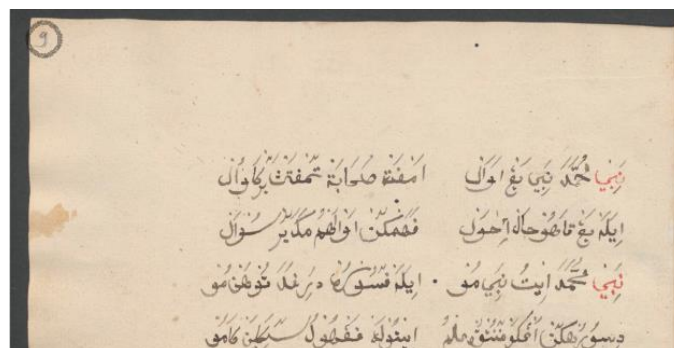 9
نبي محمد نبي يڠ اول امفت صحابة تمفت برکاول
ايله يڠ تاهو حال احوال فهمکن اولهم سؤال
نبي محمد ايت نبي مو . ايله فسوره درفد توهن مو
دسورهکن اڠکو منونتت علمو ايتوله فڠهولو سکلين کامو